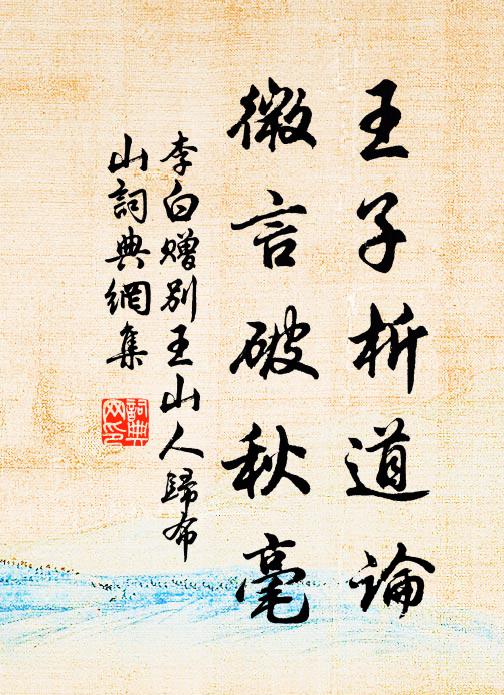 王子析道論
微言破秋毫
李白贈别王山人歸布
山詞典網集
詞典网印